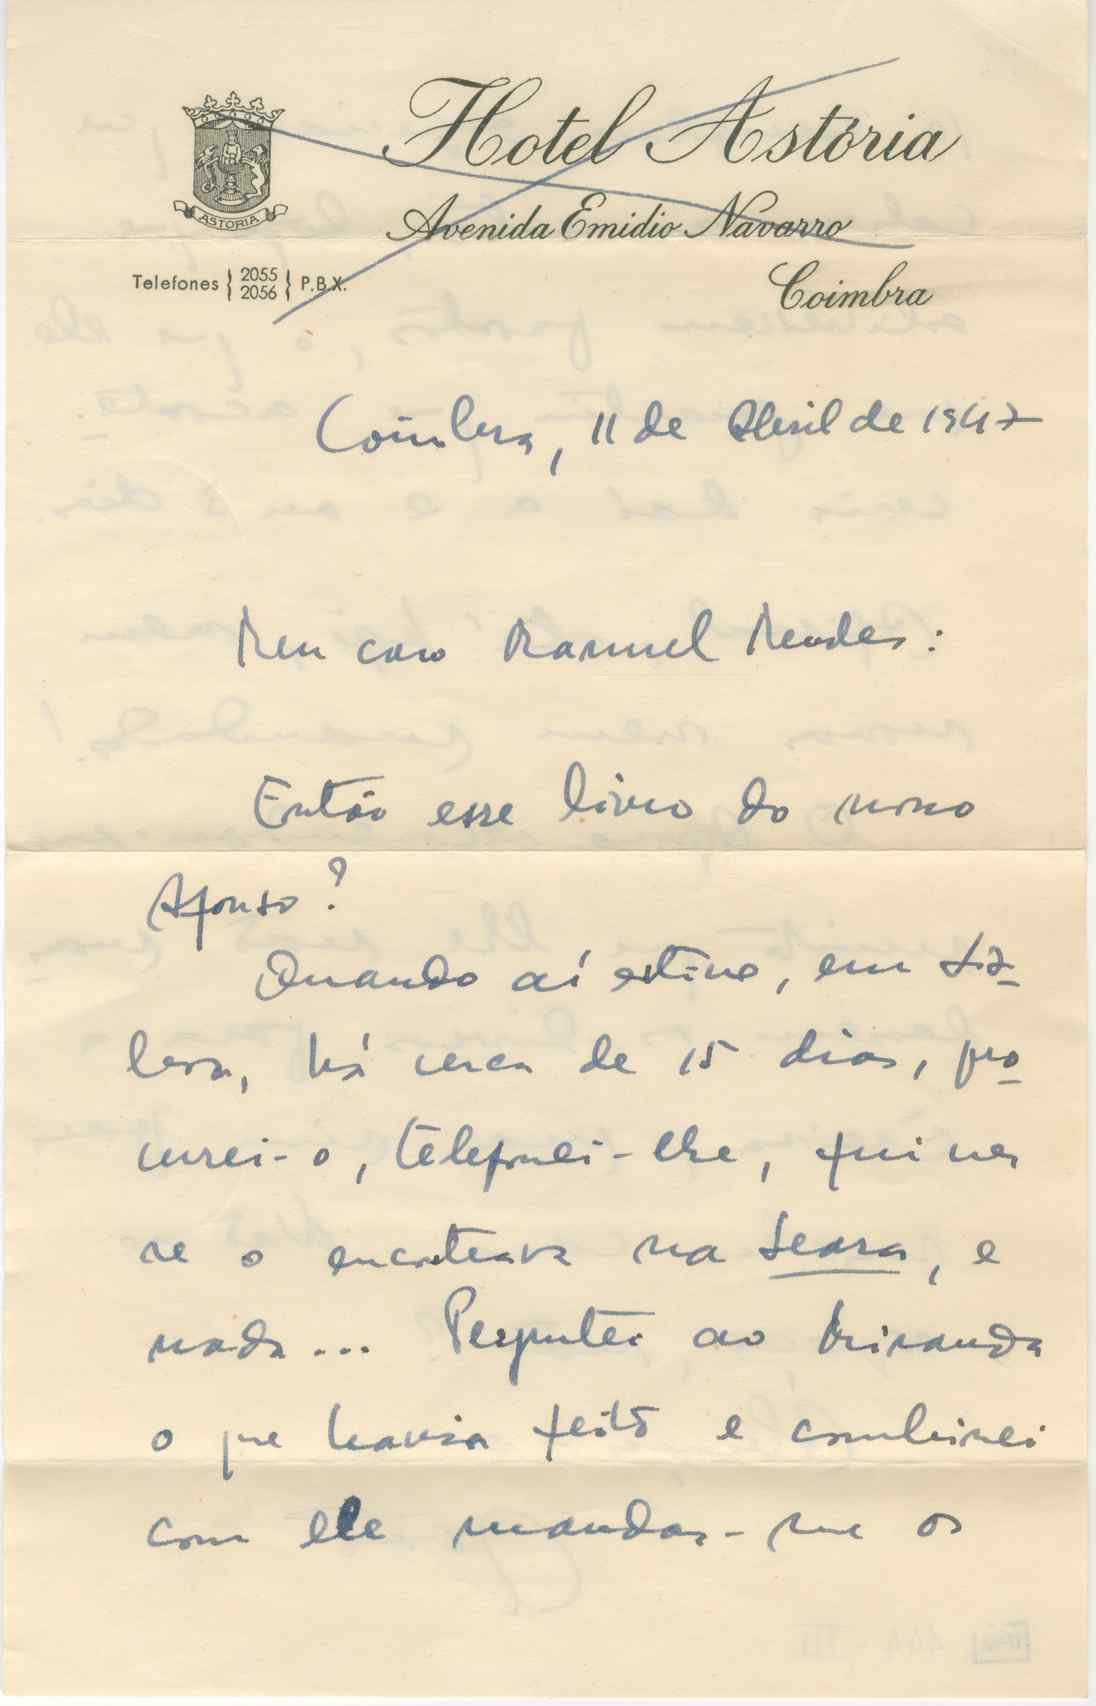 Hotel Astória
Avenida Emidio Navarro
ASTORIA
Telefones { 2055 2056 } P.B.X.
Coimbra
Coimbra, 11 de Abril de 1947
Meu caro Manuel Mendes:
Então esse livro do nosso
Afonso?
Quando aí estive, em Lis-
bora, há cerca de 15 dias, pro-
curei-o, telefonei-lhe, fui ver
se o encontrava na Seara, e
nada... Perguntei ao Miranda
o que havia feito e combinei
com ele mandar-me os